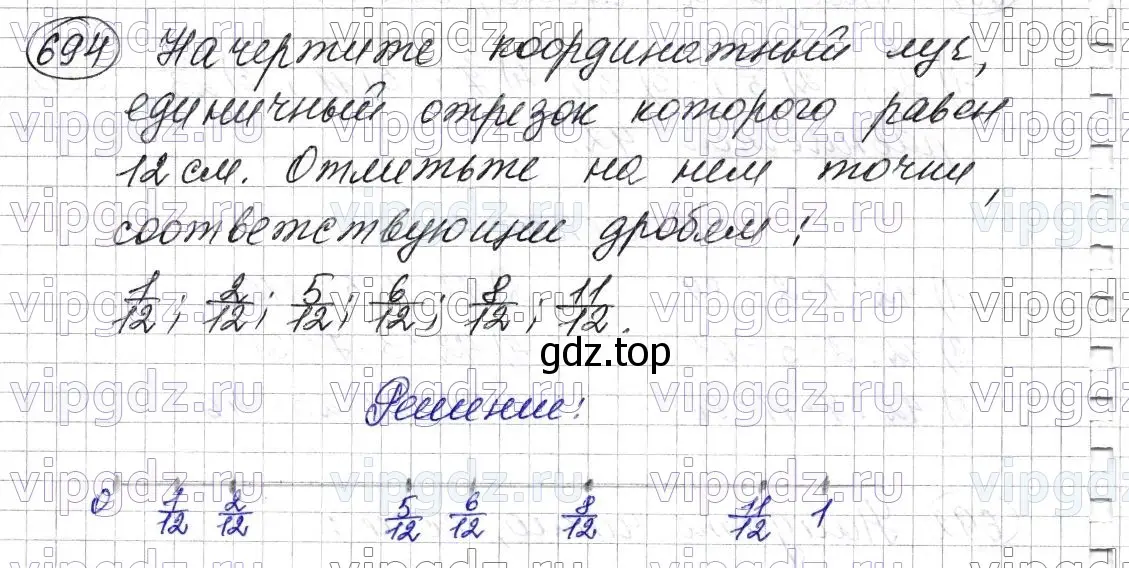 694 Начертите координатный луч,
единичный отрезок которого равен
12 см. Отметьте на нем точки,
соответствующие дробям:
1/12; 2/12; 5/12; 6/12; 8/12; 11/12.
gdz.top
Решение:
0 1/12 2/12 5/12 6/12 8/12 11/12 1
vipgdz.ru